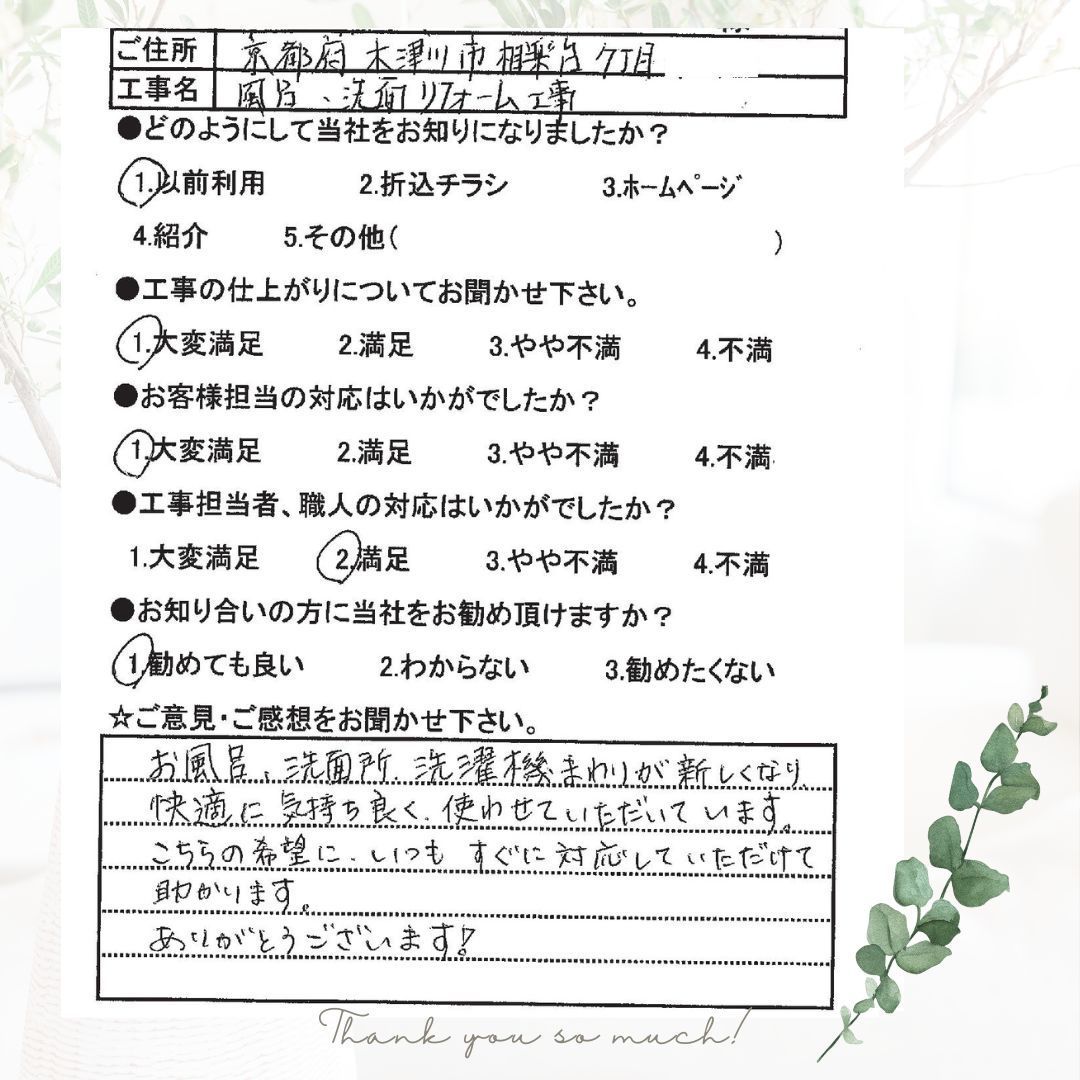 ご住所 京都府木津川市相楽台7丁目
工事名 風呂、洗面リフォーム工事
●どのようにして当社をお知りになりましたか？
1.以前利用 2.折込チラシ 3.ﾎｰﾑﾍﾟｰｼﾞ
4.紹介 5.その他( )
●工事の仕上がりについてお聞かせ下さい。
1.大変満足 2.満足 3.やや不満 4.不満
●お客様担当の対応はいかがでしたか？
1.大変満足 2.満足 3.やや不満 4.不満
●工事担当者、職人の対応はいかがでしたか？
1.大変満足 2.満足 3.やや不満 4.不満
●お知り合いの方に当社をお勧め頂けますか？
1.勧めても良い 2.わからない 3.勧めたくない
☆ご意見・ご感想をお聞かせ下さい。
お風呂、洗面所、洗濯機まわりが新しくなり、
快適に気持ち良く、使わせていただいています。
こちらの希望に、いつもすぐに対応していただけて
助かります。
ありがとうございます!
Thank you so much!